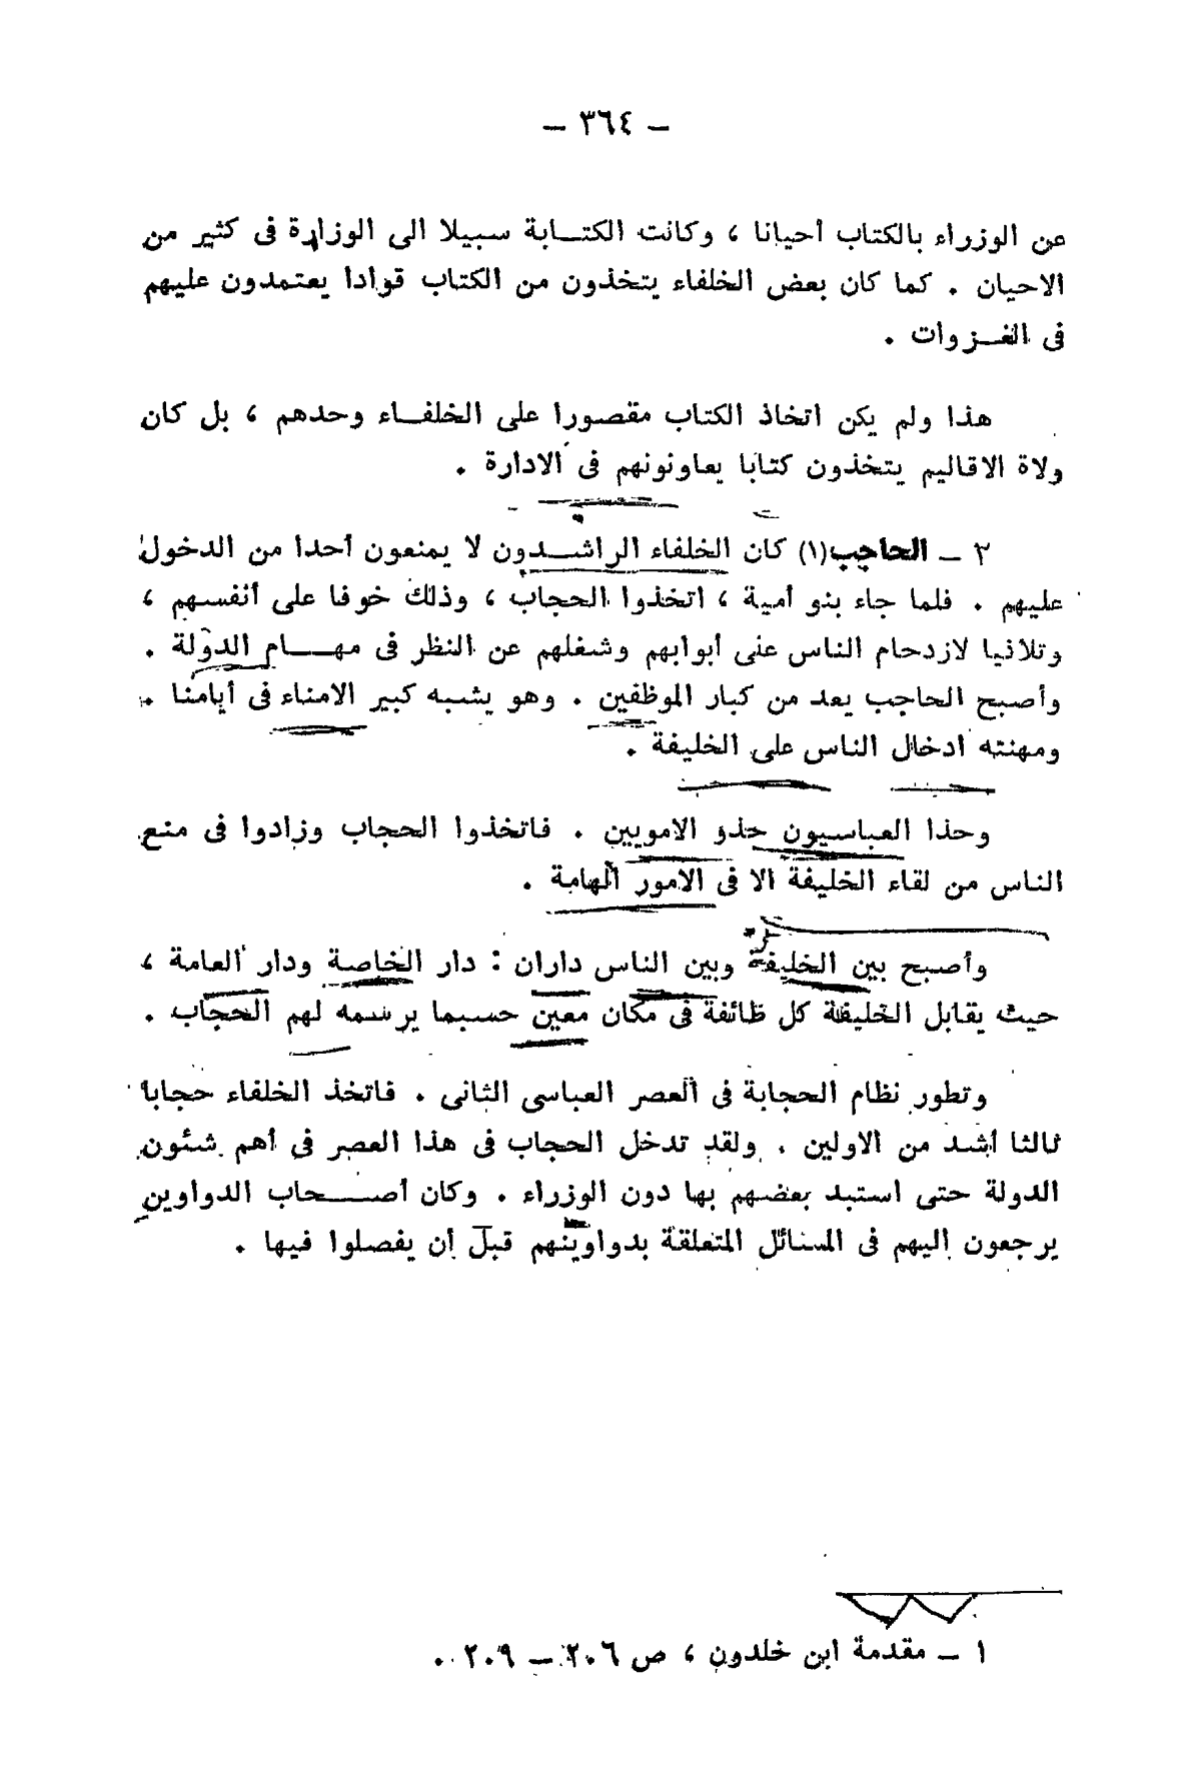 — ٣٦٤ —
عن الوزراء بالكتاب أحيانا ، وكانت الكتـابة سبيلا الى الوزارة فى كثير من
الاحيان . كما كان بعض الخلفاء يتخذون من الكتاب قوادا يعتمدون عليهم
فى الغـزوات .
هذا ولم يكن اتخاذ الكتاب مقصورا على الخلفـاء وحدهم ، بل كان
ولاة الاقاليم يتخذون كتابا يعاونونهم فى الادارة .
٢ — الحاجب(١) كان الخلفاء الراشـدون لا يمنعون أحدا من الدخول
عليهم . فلما جاء بنو أمية ، اتخذوا الحجاب ، وذلك خوفا على أنفسهم ،
وتلافيا لازدحام الناس على أبوابهم وشغلهم عن النظر فى مهـام الدولة .
وأصبح الحاجب يعد من كبار الموظفين . وهو يشبه كبير الامناء فى أيامنا .
ومهنته ادخال الناس على الخليفة .
وحذا العباسيون حذو الامويين . فاتخذوا الحجاب وزادوا فى منع
الناس من لقاء الخليفة الا فى الامور الهامة .
وأصبح بين الخليفة وبين الناس داران : دار الخاصة ودار العامة ،
حيث يقابل الخليفة كل طائفة فى مكان معين حسبما يرسمه لهم الحجاب .
وتطور نظام الحجابة فى العصر العباسى الثانى . فاتخذ الخلفاء حجابا
ثالثا أشد من الاولين . ولقد تدخل الحجاب فى هذا العصر فى أهم شئون
الدولة حتى استبد بعضهم بها دون الوزراء . وكان أصـحاب الدواوين
يرجعون اليهم فى المسائل المتعلقة بدواوينهم قبل أن يفصلوا فيها .
١ — مقدمة ابن خلدون ، ص ٢٠٦ — ٢٠٩ .